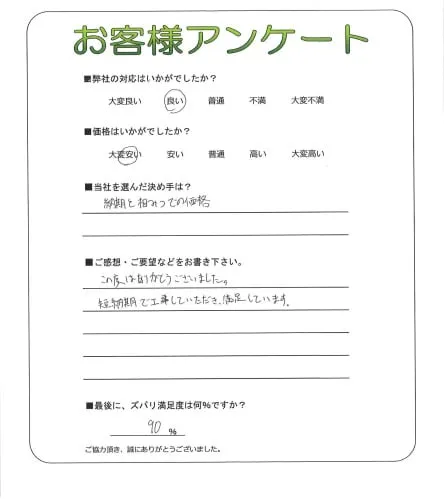 お客様アンケート
■弊社の対応はいかがでしたか？
大変良い 良い 普通 不満 大変不満
■価格はいかがでしたか？
大変安い 安い 普通 高い 大変高い
■当社を選んだ決め手は？
納期と相みつでの価格
■ご感想・ご要望などをお書き下さい。
この度はありがとうございました。
短納期で工事していただき、満足しています。
■最後に、ズバリ満足度は何%ですか？
90 %
ご協力頂き、誠にありがとうございました。